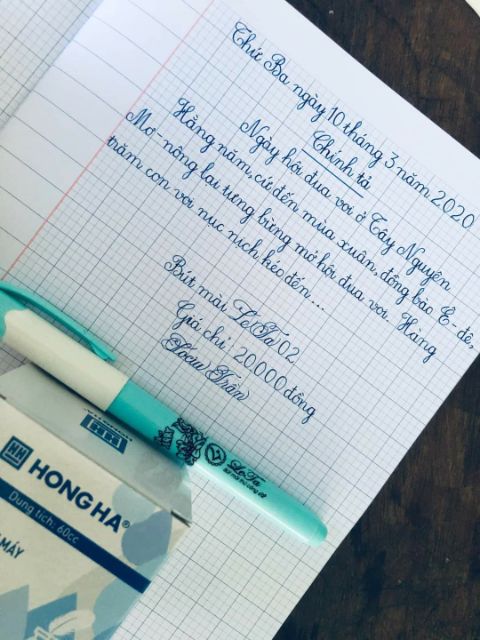 Thứ Ba ngày 10 tháng 3 năm 2020
Chính tả
Ngày hội đua voi ở Tây Nguyên
Hằng năm, cứ đến mùa xuân, đồng bào Ê-đê,
Mơ-nông lại tưng bừng mở hội đua voi. Hàng
trăm con voi nục nịch kéo đến...
Bút mài LeTa 02
Giá chỉ: 20.000 đồng
Trần
LeTa
HH HONG HA®
Dung tích: 60cc
MÁY